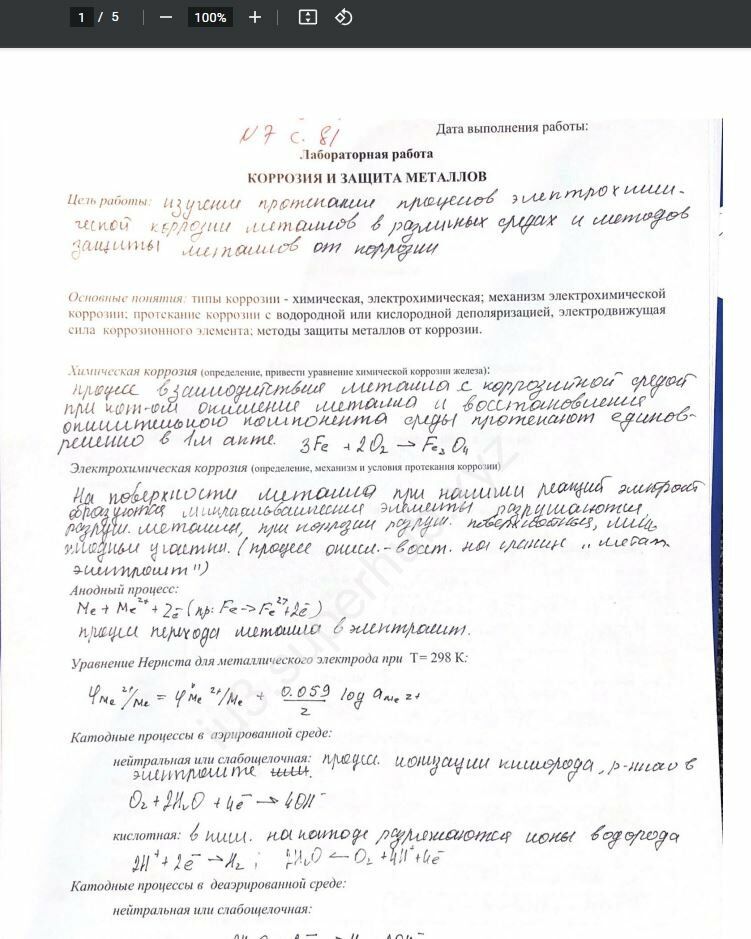 1 / 5 100%
N 7 с. 81
Дата выполнения работы:
Лабораторная работа
КОРРОЗИЯ И ЗАЩИТА МЕТАЛЛОВ
Цель работы: изучение протекания процесов электрохими-
ческой коррозии металлов в различных средах и методов
защиты металлов от коррозии
Основные понятия: типы коррозии - химическая, электрохимическая; механизм электрохимической
коррозии; протекание коррозии с водородной или кислородной деполяризацией, электродвижущая
сила коррозионного элемента; методы защиты металлов от коррозии.
Химическая коррозия (определение, привести уравнение химической коррозии железа):
процесс взаимодействия металла с коррозийной средой
при кот-ом окисление металла и восстановление
окислительного компонента среды протекают единов-
ременно в 1м акте. 3Fe + 2O₂ → Fe₃O₄
Электрохимическая коррозия (определение, механизм и условия протекания коррозии)
На поверхности металла при налиии реакций
образуются микрогальванические элементы разрушаются
разруш. металлы, при корозии разруш. лишь
(процесс окисл.-восст. на границе "метал
электролит")
Анодный процесс:
Me + Me²⁺ + 2e̅ (пр: Fe -> Fe²⁺ + 2e̅)
процесс перехода металла в электролит.
Уравнение Нернста для металлического электрода при Т= 298 К:
φMe²⁺/Me = φ°Me²⁺/Me + 0.059/z log aMe z+
Катодные процессы в аэрированной среде:
нейтральная или слабощелочная: процесс. ионизации кислорода, р-нного в
электролите
O₂ + 2H₂O + 4e̅ → 4OH⁻
кислотная: в кисл. на катоде разряжаются ионы водорода
2H⁺ + 2e̅ → H₂ ; 2H₂O ← O₂ + 4H⁺ + 4e̅
Катодные процессы в деаэрированной среде:
нейтральная или слабощелочная: